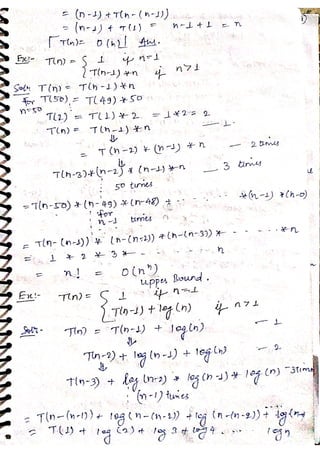 = (n-1) + T(n-(n-1))
= (n-1) + T(1) = n-1+1 = n
T(n) = O(n) Ans.
Ex:- T(n) = { 1 if n=1
{ T(n-1)*n if n>1
Soln T(n) = T(n-1)*n
for n=50 T(50) = T(49)*50
T(2) = T(1)*2 = 1*2 = 2
T(n) = T(n-1)*n — 1.
= T(n-2)*(n-1)*n — 2 times
T(n-3)*(n-2)*(n-1)*n — 3 times
50 times
= T(n-50)*(n-49)*(n-48)* - - *(n-1)*(n-0)
for n-1 times
= T(n-(n-1))*(n-(n-2))*(n-(n-3))* - - *n
= 1 * 2 * 3 * - - - n
= n! = O(nⁿ)
upper Bound.
Ex:- T(n) = { 1 if n=1
{ T(n-1) + log(n) if n>1
Soln. T(n) = T(n-1) + log(n) — 1
T(n-2) + log(n-1) + log(n) — 2
T(n-3) + log(n-2) + log(n-1) + log(n) - 3 times
(n-1) times
= T(n-(n-1)) + log(n-(n-2)) + log(n-(n-2)) + log(n-
= T(1) + log(2) + log 3 + log 4 . . . log n